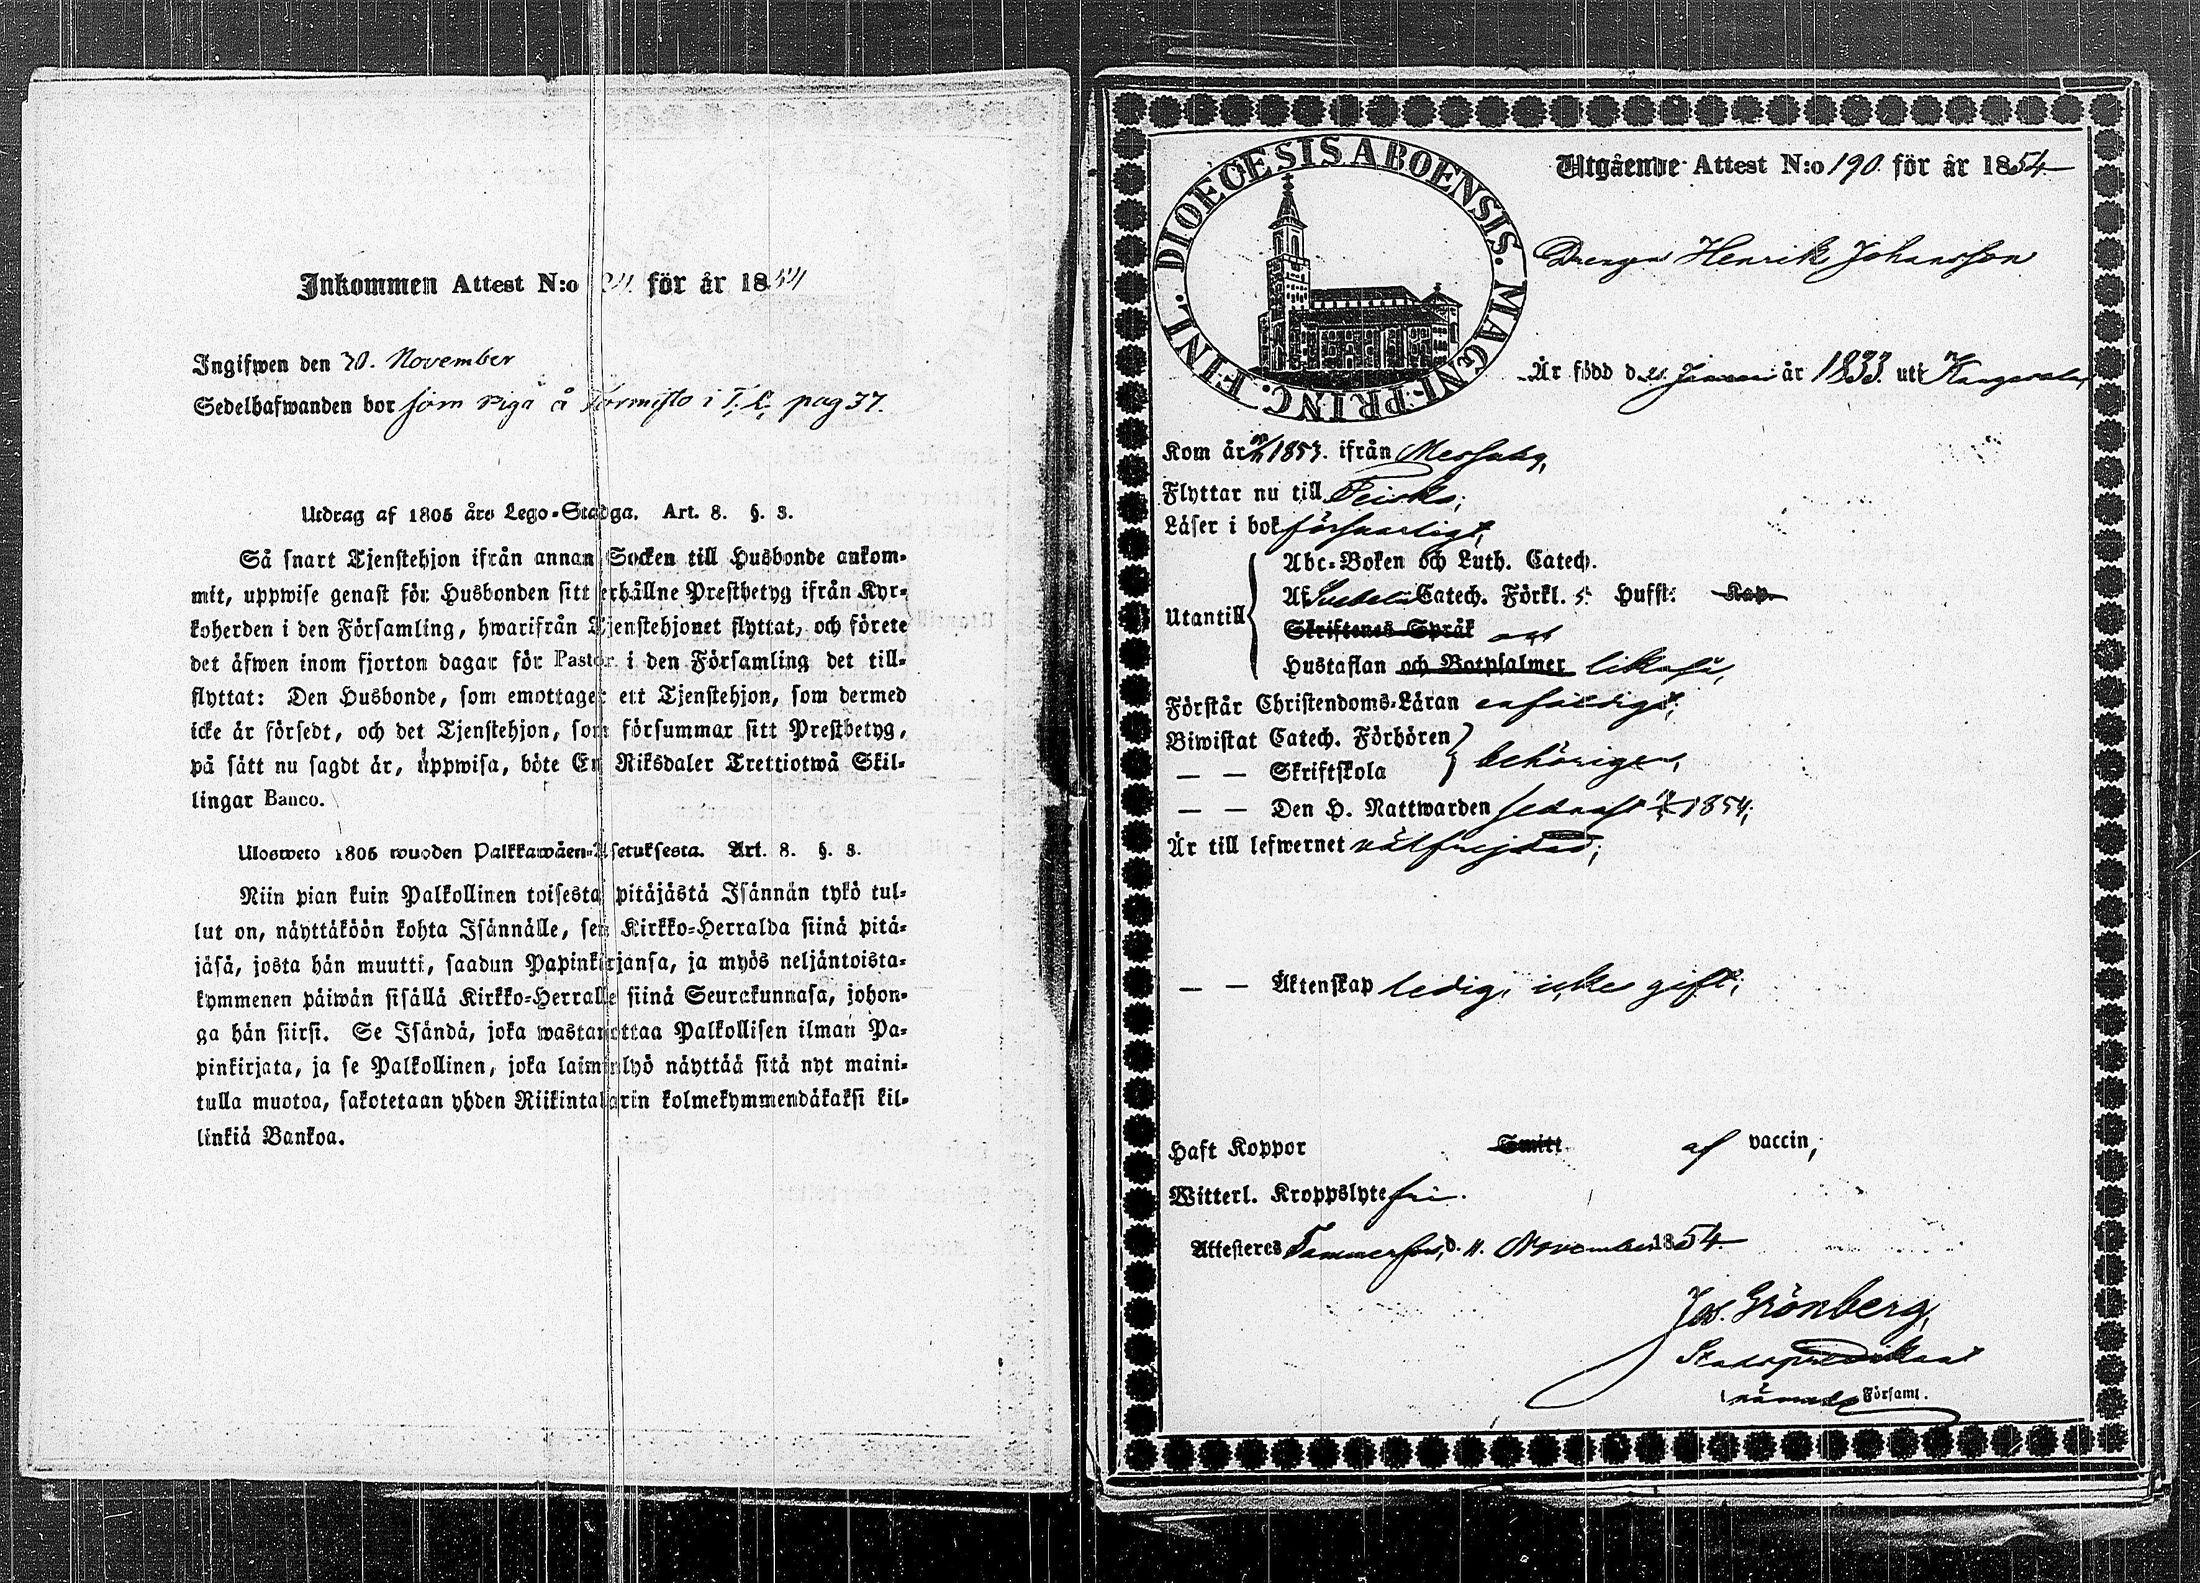 Inkommen Attest N:o 24. för år 1854
Ingifwen den 30. November
Sedelhafwanden bor som piga å Tormisto i T. L. pag 37.
Utdrag af 1805 års Lego-Stadga. Art. 8. §. 3.
Så snart Tjenstehjon ifrån annan Socken till Husbonde ankom-
mit, uppwise genast för Husbonden sitt erhållne Prestbetyg ifrån Kyr-
koherden i den Församling, hwarifrån Tjenstehjonet flyttat, och förete
det äfwen inom fjorton dagar för Pastor i den Församling det till-
flyttat: Den Husbonde, som emottager ett Tjenstehjon, som dermed
icke är försedt, och det Tjenstehjon, som försummar sitt Prestbetyg,
på sätt nu sagdt är, uppwisa, böte En Riksdaler Trettiotwå Skil-
lingar Banco.
Ulosweto 1805 wuoden Palkkawäen-Asetuksesta. Art. 8. §. 3.
Niin pian kuin Palkollinen toisesta pitäjästä Isännän tykö tul-
lut on, näyttäköön kohta Isännälle, sen Kirkko-Herralda siinä pitä-
jäsä, josta hän muutti, saadun Papinkirjansa, ja myös neljäntoista-
kymmenen päiwän sisällä Kirkko-Herralle siinä Seurakunnasa, johon-
ga hän siirsi. Se Isändä, joka wastanottaa Palkollisen ilman Pa-
pinkirjata, ja se Palkollinen, joka laiminlyö näyttää sitä nyt maini-
tulla muotoa, sakotetaan yhden Riikintalarin kolmekymmendäkaksi kil-
linkiä Bankoa.
DIOECESIS ABOENSIS. MAGNI. PRINC. FINL.
Utgående Attest N:o 190. för år 1854
Drengen Henrik Johansson
Är född d. Januari år 1833. uti Kangasala,
Kom år 1853. ifrån Messuby,
Flyttar nu till Teisko;
Läser i bok försvarligt,
Utantill
Abc-Boken och Luth. Catech.
Af Svebelii Catech. Förkl. 5. Hufst: Kap.
Skriftenes Språk och
Hustaflan och Botpsalmer likaså,
Förstår Christendoms-Läran enfaldigt;
Biwistat Catech. Förhören
— — Skriftskola
behörigen,
— — Den H. Nattwarden sednast 1854;
Är till lefwernet välfrejdad;
— — Äktenskap ledig, icke gift;
Haft Koppor Smitt af vaccin,
Witterl. Kroppslyte fri.
Attesteres Tammerfors, d. 11. November 1854.
Jos. Grönberg,
Stadspredikant
i nämnde Församl.